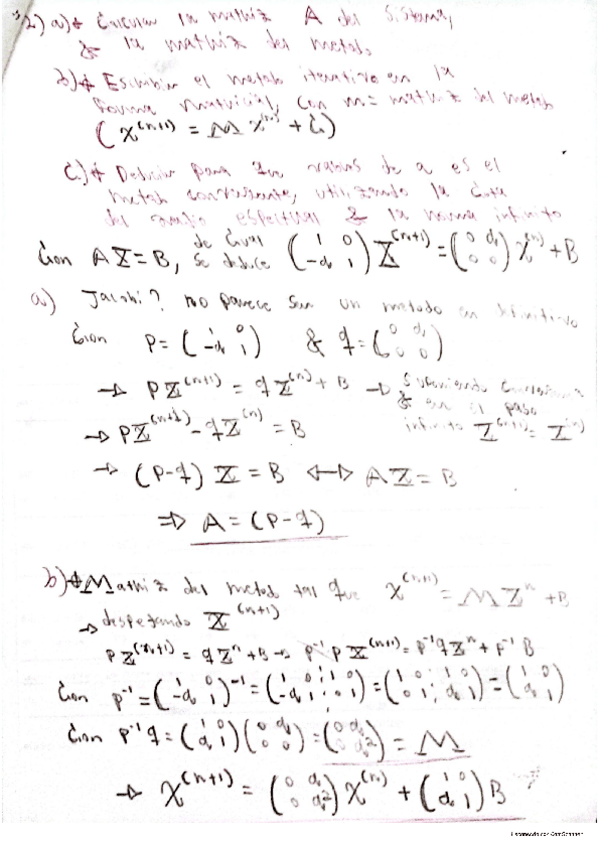 2) a)* Calcular la mathiz A del Sistema,
& la mathiz del metodo
b)* Escribir el metodo iterativo en la
forma matricial, con m= mathiz del metodo
(X^(n+1) = M X^(n) + C)
c)* Deducir para que valores de a es el
metodo convergente, utilizando la cota
del radio espectral & la norma infinito
Con AX=B, de cual se deduce (1 0; -α 1) X^(n+1) = (0 α; 0 0) X^(n) + B
a) Jacobi? no parece ser un metodo en definitivo
Con P=(1 0; -α 1) & q=(0 α; 0 0)
→ PX^(n+1) = qX^(n) + B → Suponiendo
& en el paso
→ PX^(n+1) - qX^(n) = B infinito X^(n+1) = X^(n)
→ (P-q) X = B ↔ AX = B
⇒ A = (P-q)
b)* Mathiz del metodo tal que X^(n+1) = M X^n + B
→ despejando X^(n+1)
PX^(n+1) = qX^n + B → P^-1 PX^(n+1) = P^-1 qX^n + P^-1 B
Con P^-1 = (1 0; -α 1)^-1 = (1 0 ¦ 1 0; -α 1 ¦ 0 1) = (1 0 ¦ 1 0; 0 1 ¦ α 1) = (1 0; α 1)
Con P^-1 q = (1 0; α 1)(0 α; 0 0) = (0 α; 0 α²) = M
→ X^(n+1) = (0 α; 0 α²) X^(n) + (1 0; α 1) B